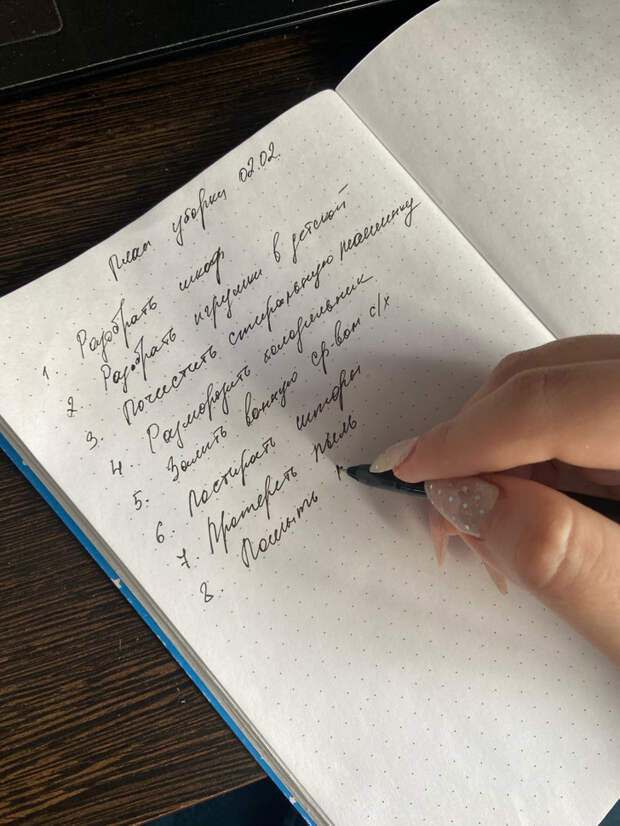 План уборки 02.02.
1. Разобрать шкаф
2. Разобрать игрушки в детской
3. Почистить стиральную машинку
4. Разморозить холодильник
5. Залить ванную ср-вом с/х
6. Постирать шторы
7. Протереть пыль
8. Помыть